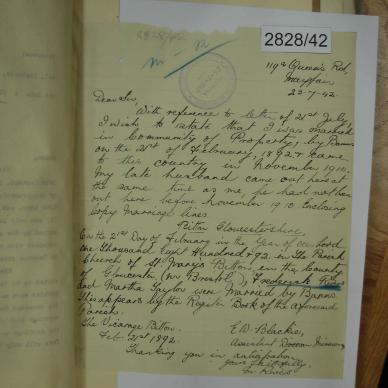 2828/42
119a Queen's Rd,
Mayfair
23-7-42
Dear Sir,
With reference to letter of 21st July
I wish to state that I was married
in Community of Property, by Banns
on the 21st of February, 1892 & came
to this country in November 1910.
My late husband came out here at
the same time as me, he had not been
out here before November 1910. Enclosing
Copy Marriage lines
Bitton Gloucestershire.
On the 21st Day of February in the Year of our Lord
One Thousand Eight Hundred & 92. in The Parish
Church of St. Mary's Bitton, in the County
of Gloucester (nr Bristol), Frederick
and Martha Taylor were Married by Banns
This appears by the Register Book of the aforesaid
Parish.
The Vicarage Bitton. E W Blackie,
Feb. 21st 1892. Assistant
Thanking you in anticipation
Yours faithfully,